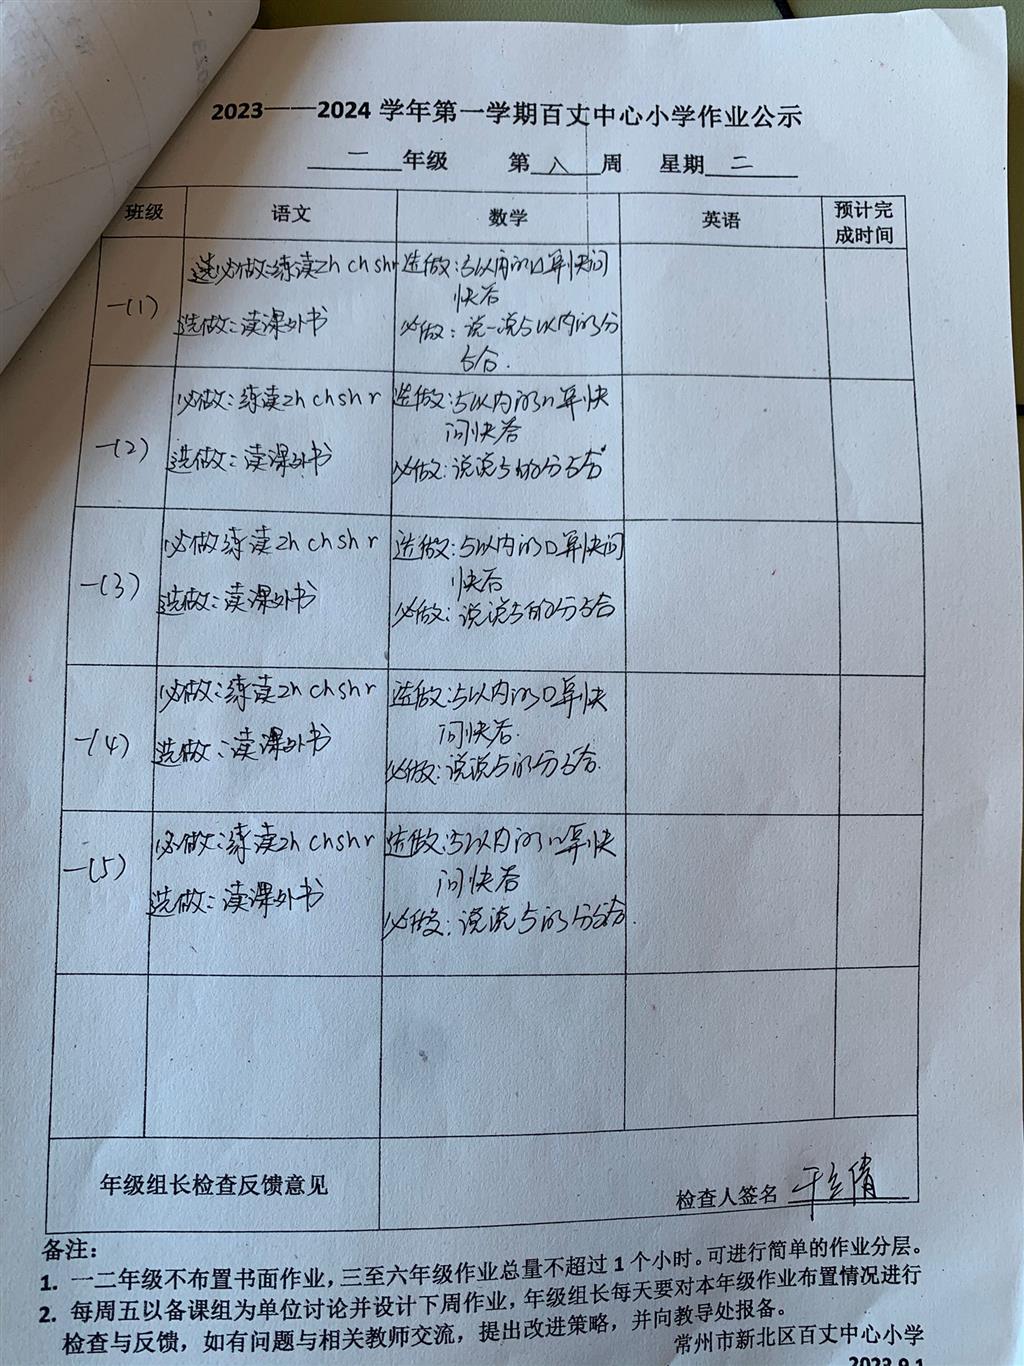 2023——2024 学年第一学期百丈中心小学作业公示
一 年级 第 八 周 星期 二
班级 语文 数学 英语 预计完成时间
一(1)
必做:练读zh ch sh r
选做:读课外书
选做:5以内的口算快问
快答
必做:说一说5以内的分
与合.
一(2)
必做:练读zh ch sh r
选做:读课外书
选做:5以内的口算快
问快答
必做:说说5的分与合
一(3)
必做练读zh ch sh r
选做:读课外书
选做:5以内的口算快问
快答
必做:说说5的分与合
一(4)
必做:练读zh ch sh r
选做:读课外书
选做:5以内的口算快
问快答.
必做:说说5的分与合.
一(5)
必做:练读zh ch sh r
选做:读课外书
选做:5以内的口算快
问快答
必做:说说5的分与合.
年级组长检查反馈意见
检查人签名
备注:
1. 一二年级不布置书面作业，三至六年级作业总量不超过 1 个小时。可进行简单的作业分层。
2. 每周五以备课组为单位讨论并设计下周作业，年级组长每天要对本年级作业布置情况进行
检查与反馈，如有问题与相关教师交流，提出改进策略，并向教导处报备。
常州市新北区百丈中心小学
2023.9.1